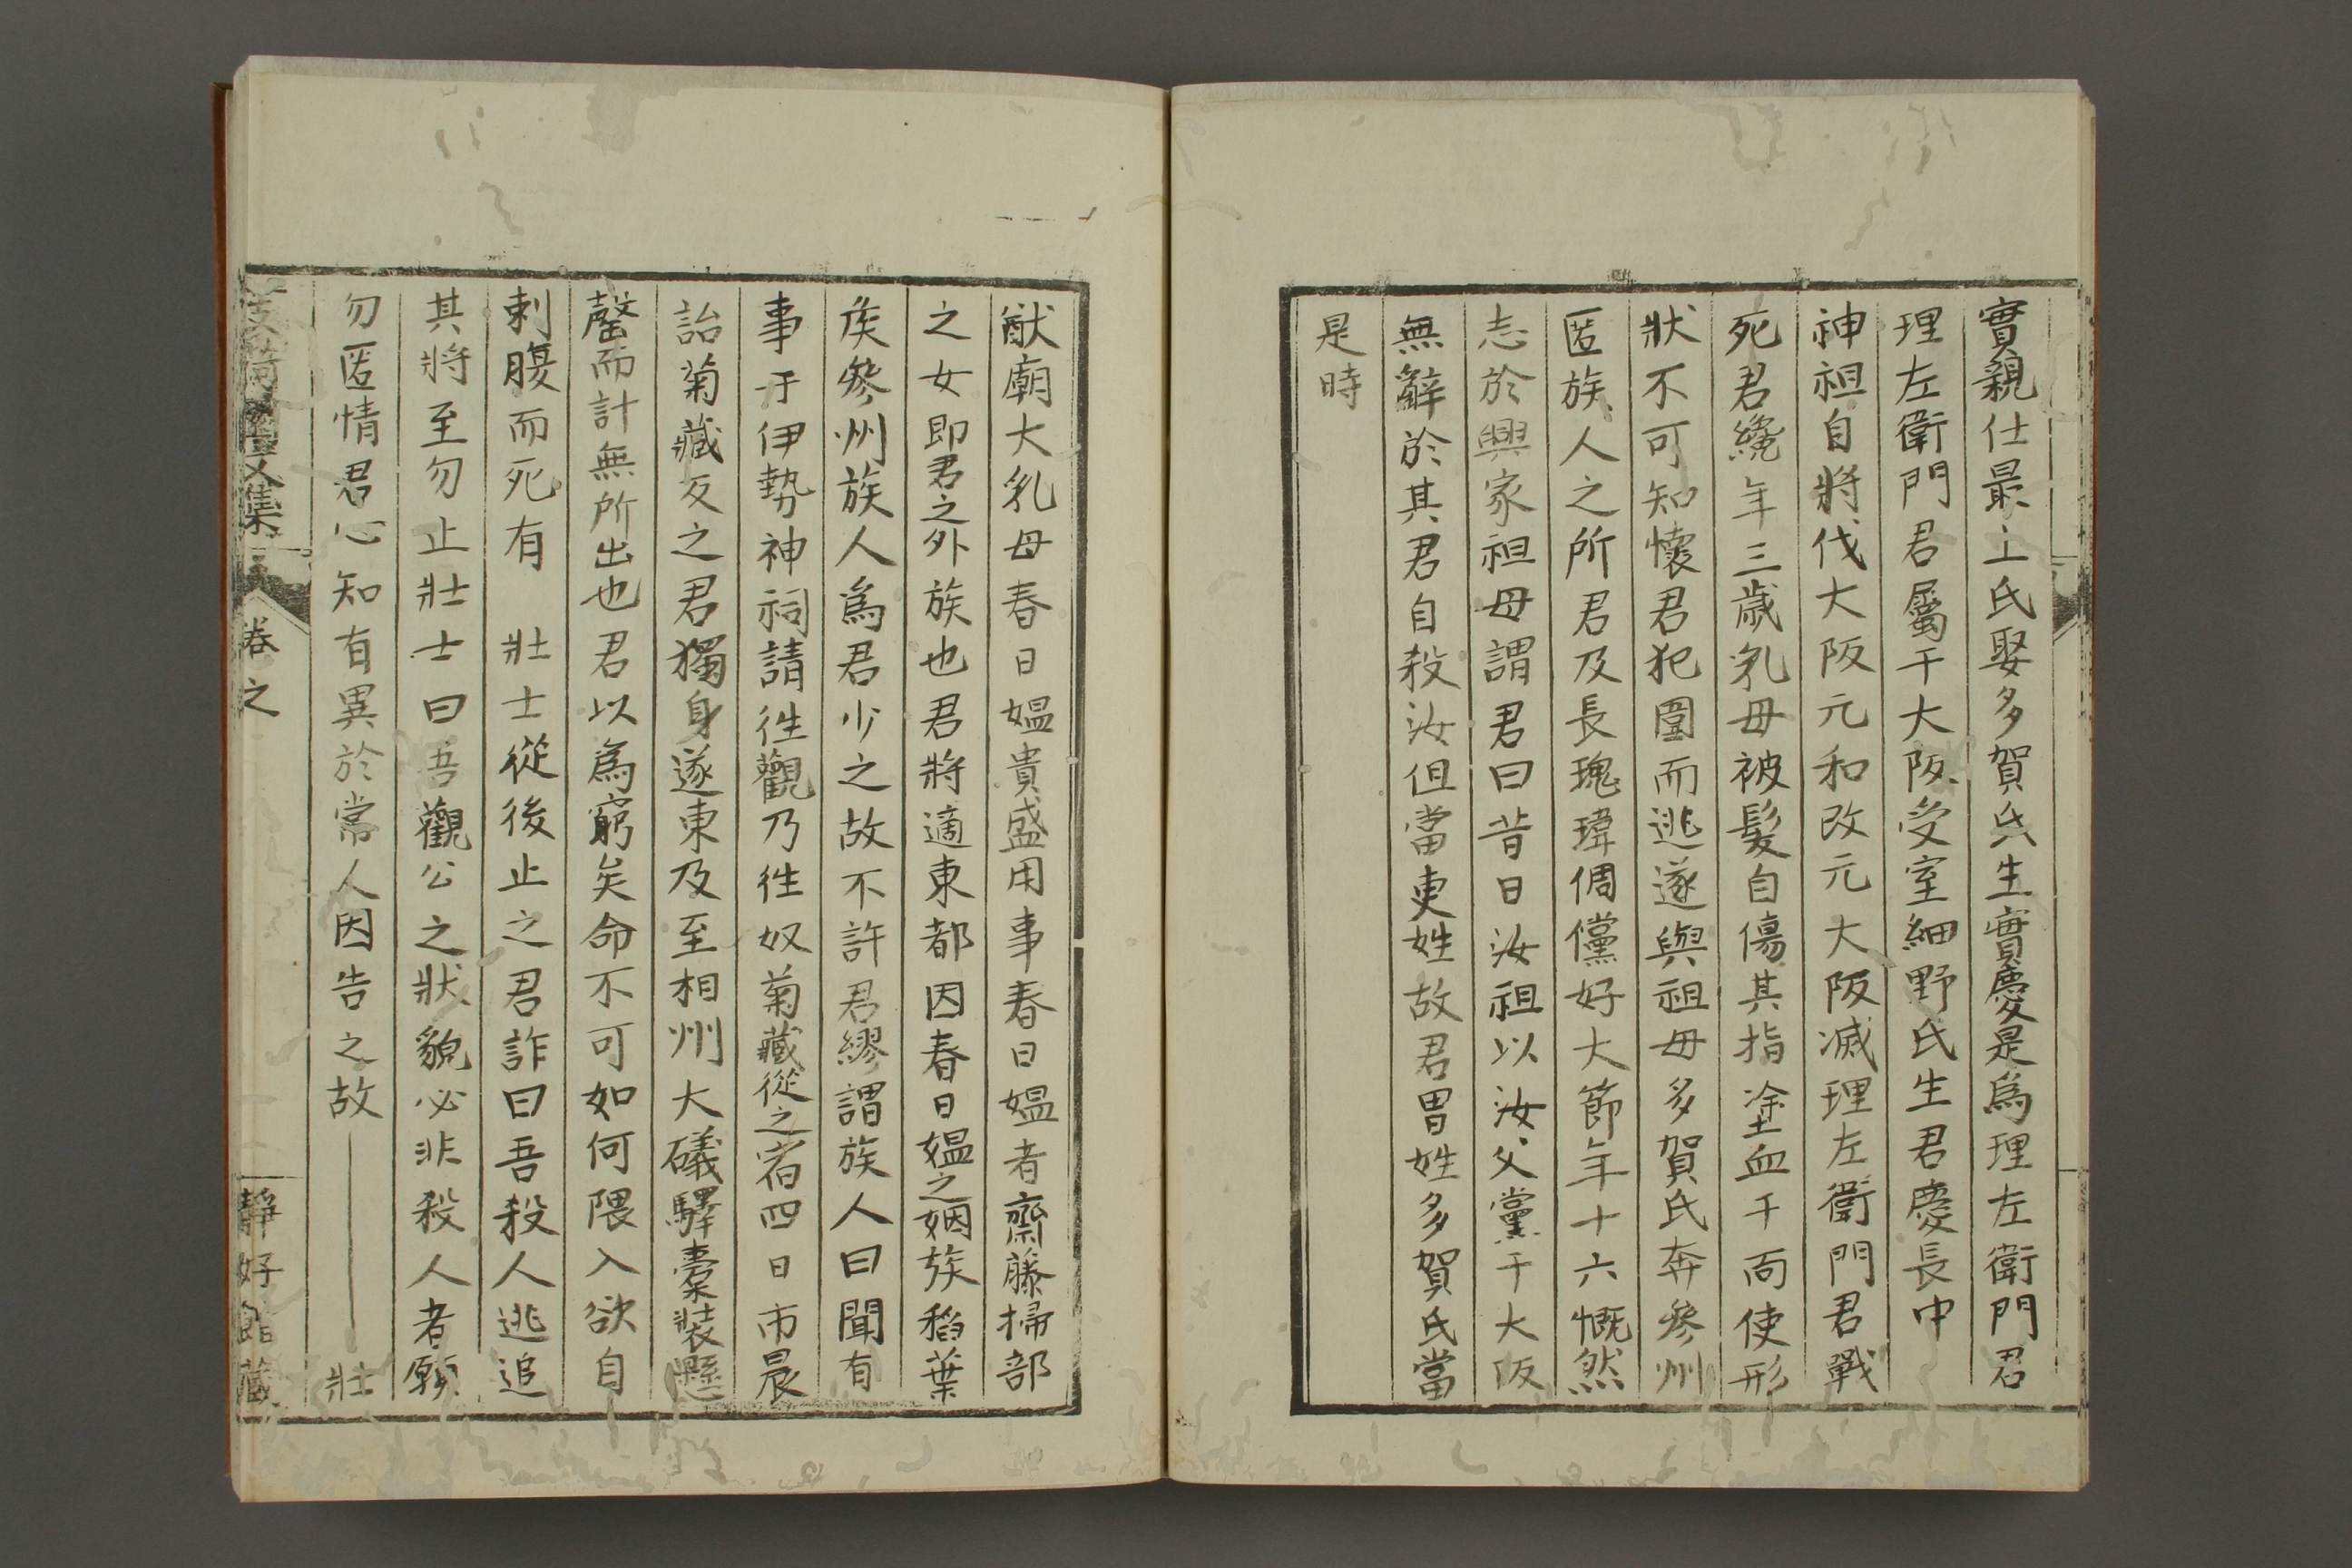 實親仕最上氏娶多賀氏生實慶是爲理左衛門君
理左衛門君屬于大阪受室細野氏生君慶長中
神祖自將伐大阪元和改元大阪滅理左衛門君戰
死君纔年三歲乳母被髮自傷其指塗血于面使形
狀不可知懷君犯圍而逃遂與祖母多賀氏奔參州
匿族人之所君及長瑰瑋倜儻好大節年十六慨然
志於興家祖母謂君曰昔日汝祖以汝父黨于大阪
無辭於其君自殺汝但當更姓故君冒姓多賀氏當
是時
猷廟大乳母春日媼貴盛用事春日媼者齋藤掃部
之女即君之外族也君將適東都因春日媼之姻族稻葉
矦參州族人爲君少之故不許君繆謂族人曰聞有
事于伊勢神祠請徃觀乃徃奴菊藏從之宿四日市晨
詒菊藏反之君獨身遂東及至相州大礒驛橐裝懸
罄而計無所出也君以爲窮矣命不可如何隈入欲自
刺腹而死有 壯士從後止之君詐曰吾殺人逃追
其將至勿止壯士曰吾觀公之狀貌必非殺人者願
勿匿情君心知有異於常人因告之故 壯
文集 卷之 靜好館藏